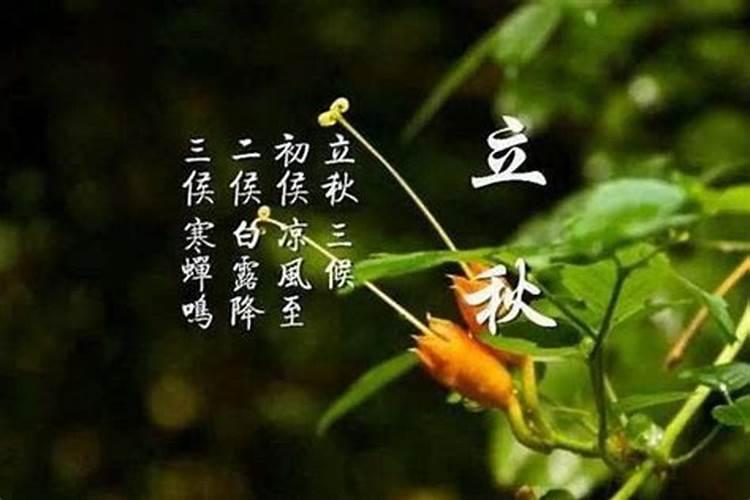 立秋
立秋三候
初侯凉風至
二侯白露降
三侯寒蟬鳴